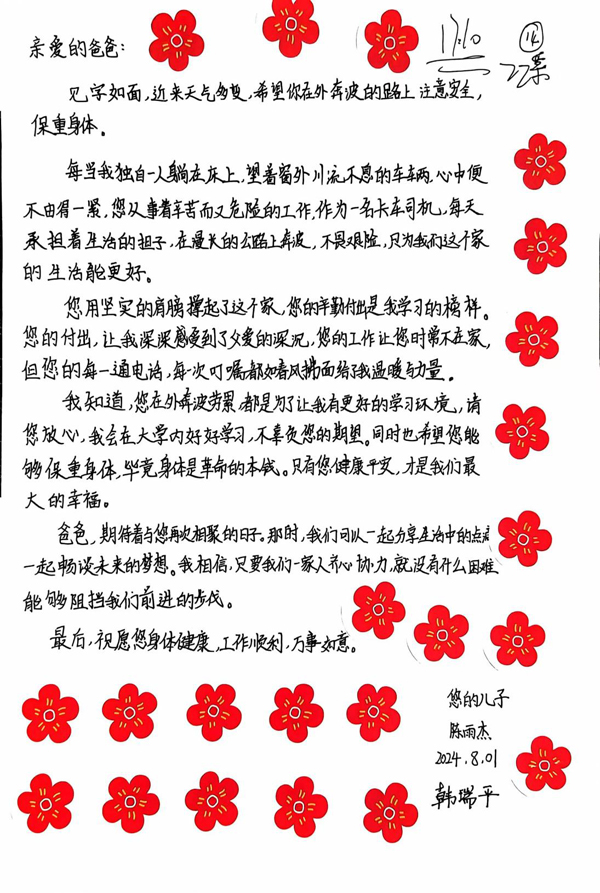 17:10
亲爱的爸爸:
见字如面,近来天气多变,希望你在外奔波的路上注意安全,
保重身体。
每当我独自一人躺在床上,望着窗外川流不息的车车两,心中便
不由得一紧,您从事着辛苦而又危险的工作,作为一名卡车司机,每天
承担着生活的担子,在漫长的公路上奔波,不畏艰险,只为我们这个家
的生活能更好。
您用坚实的肩膀撑起了这个家,您的辛勤付出是我学习的榜样。
您的付出,让我深深感受到了父爱的深沉,您的工作让您时常不在家,
但您的每一通电话,每一次叮嘱都如春风拂面给了我温暖与力量。
我知道,您在外奔波劳累都是为了让我有更好的学习环境,请
您放心,我会在大学内好好学习,不辜负您的期望。同时也希望您能
够保重身体,毕竟身体是革命的本钱。只有您健康平安,才是我们最
大的幸福。
爸爸,期待着与您再次相聚的日子。那时,我们可以一起分享生活中的点滴
一起畅谈未来的梦想。我相信,只要我们一家人齐心协力,就没有什么困难
能够阻挡我们前进的步伐。
最后,祝愿您身体健康,工作顺利,万事如意。
您的儿子
陈雨杰
2024.8.01
韩瑞平